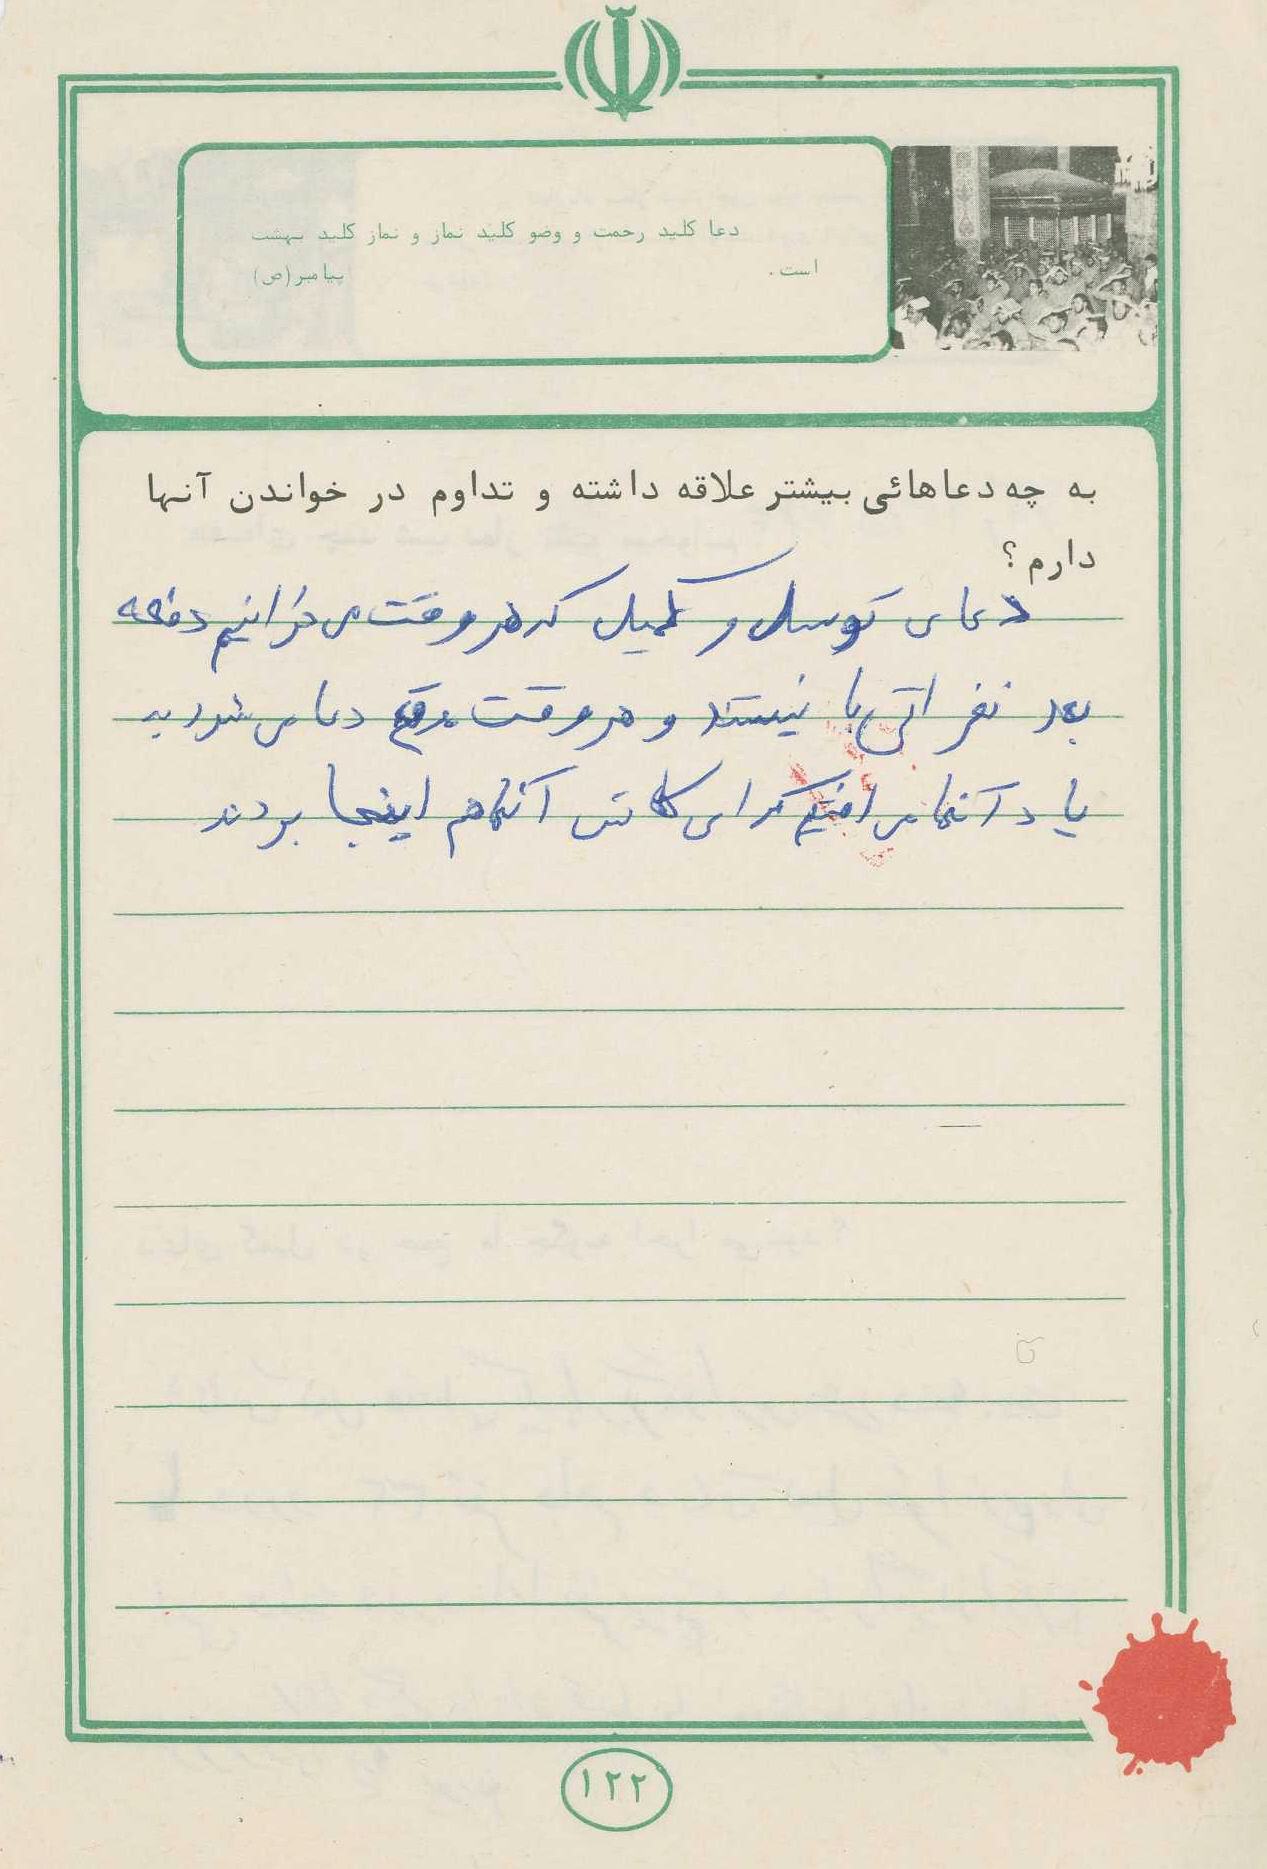 دعا کلید رحمت و وضو کلید نماز و نماز کلید بهشت
است. پیامبر(ص)
به چه دعاهائی بیشتر علاقه داشته و تداوم در خواندن آنها
دارم؟
دعای توسل و کمیل که هر وقت می خوانیم دفعه
بعد نفراتی با نیستند و هر وقت موقع دعا می شود به
یاد آنها می افتیم که ای کاش آنها هم اینجا بودند
۱۲۲